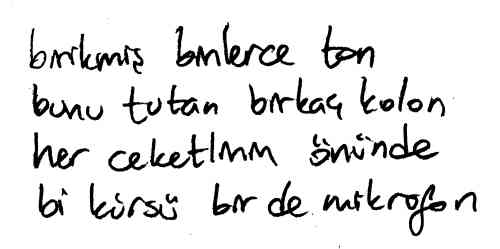 birikmiş binlerce ton
bunu tutan birkaç kolon
her ceketlinin önünde
bi kürsü bir de mikrofon